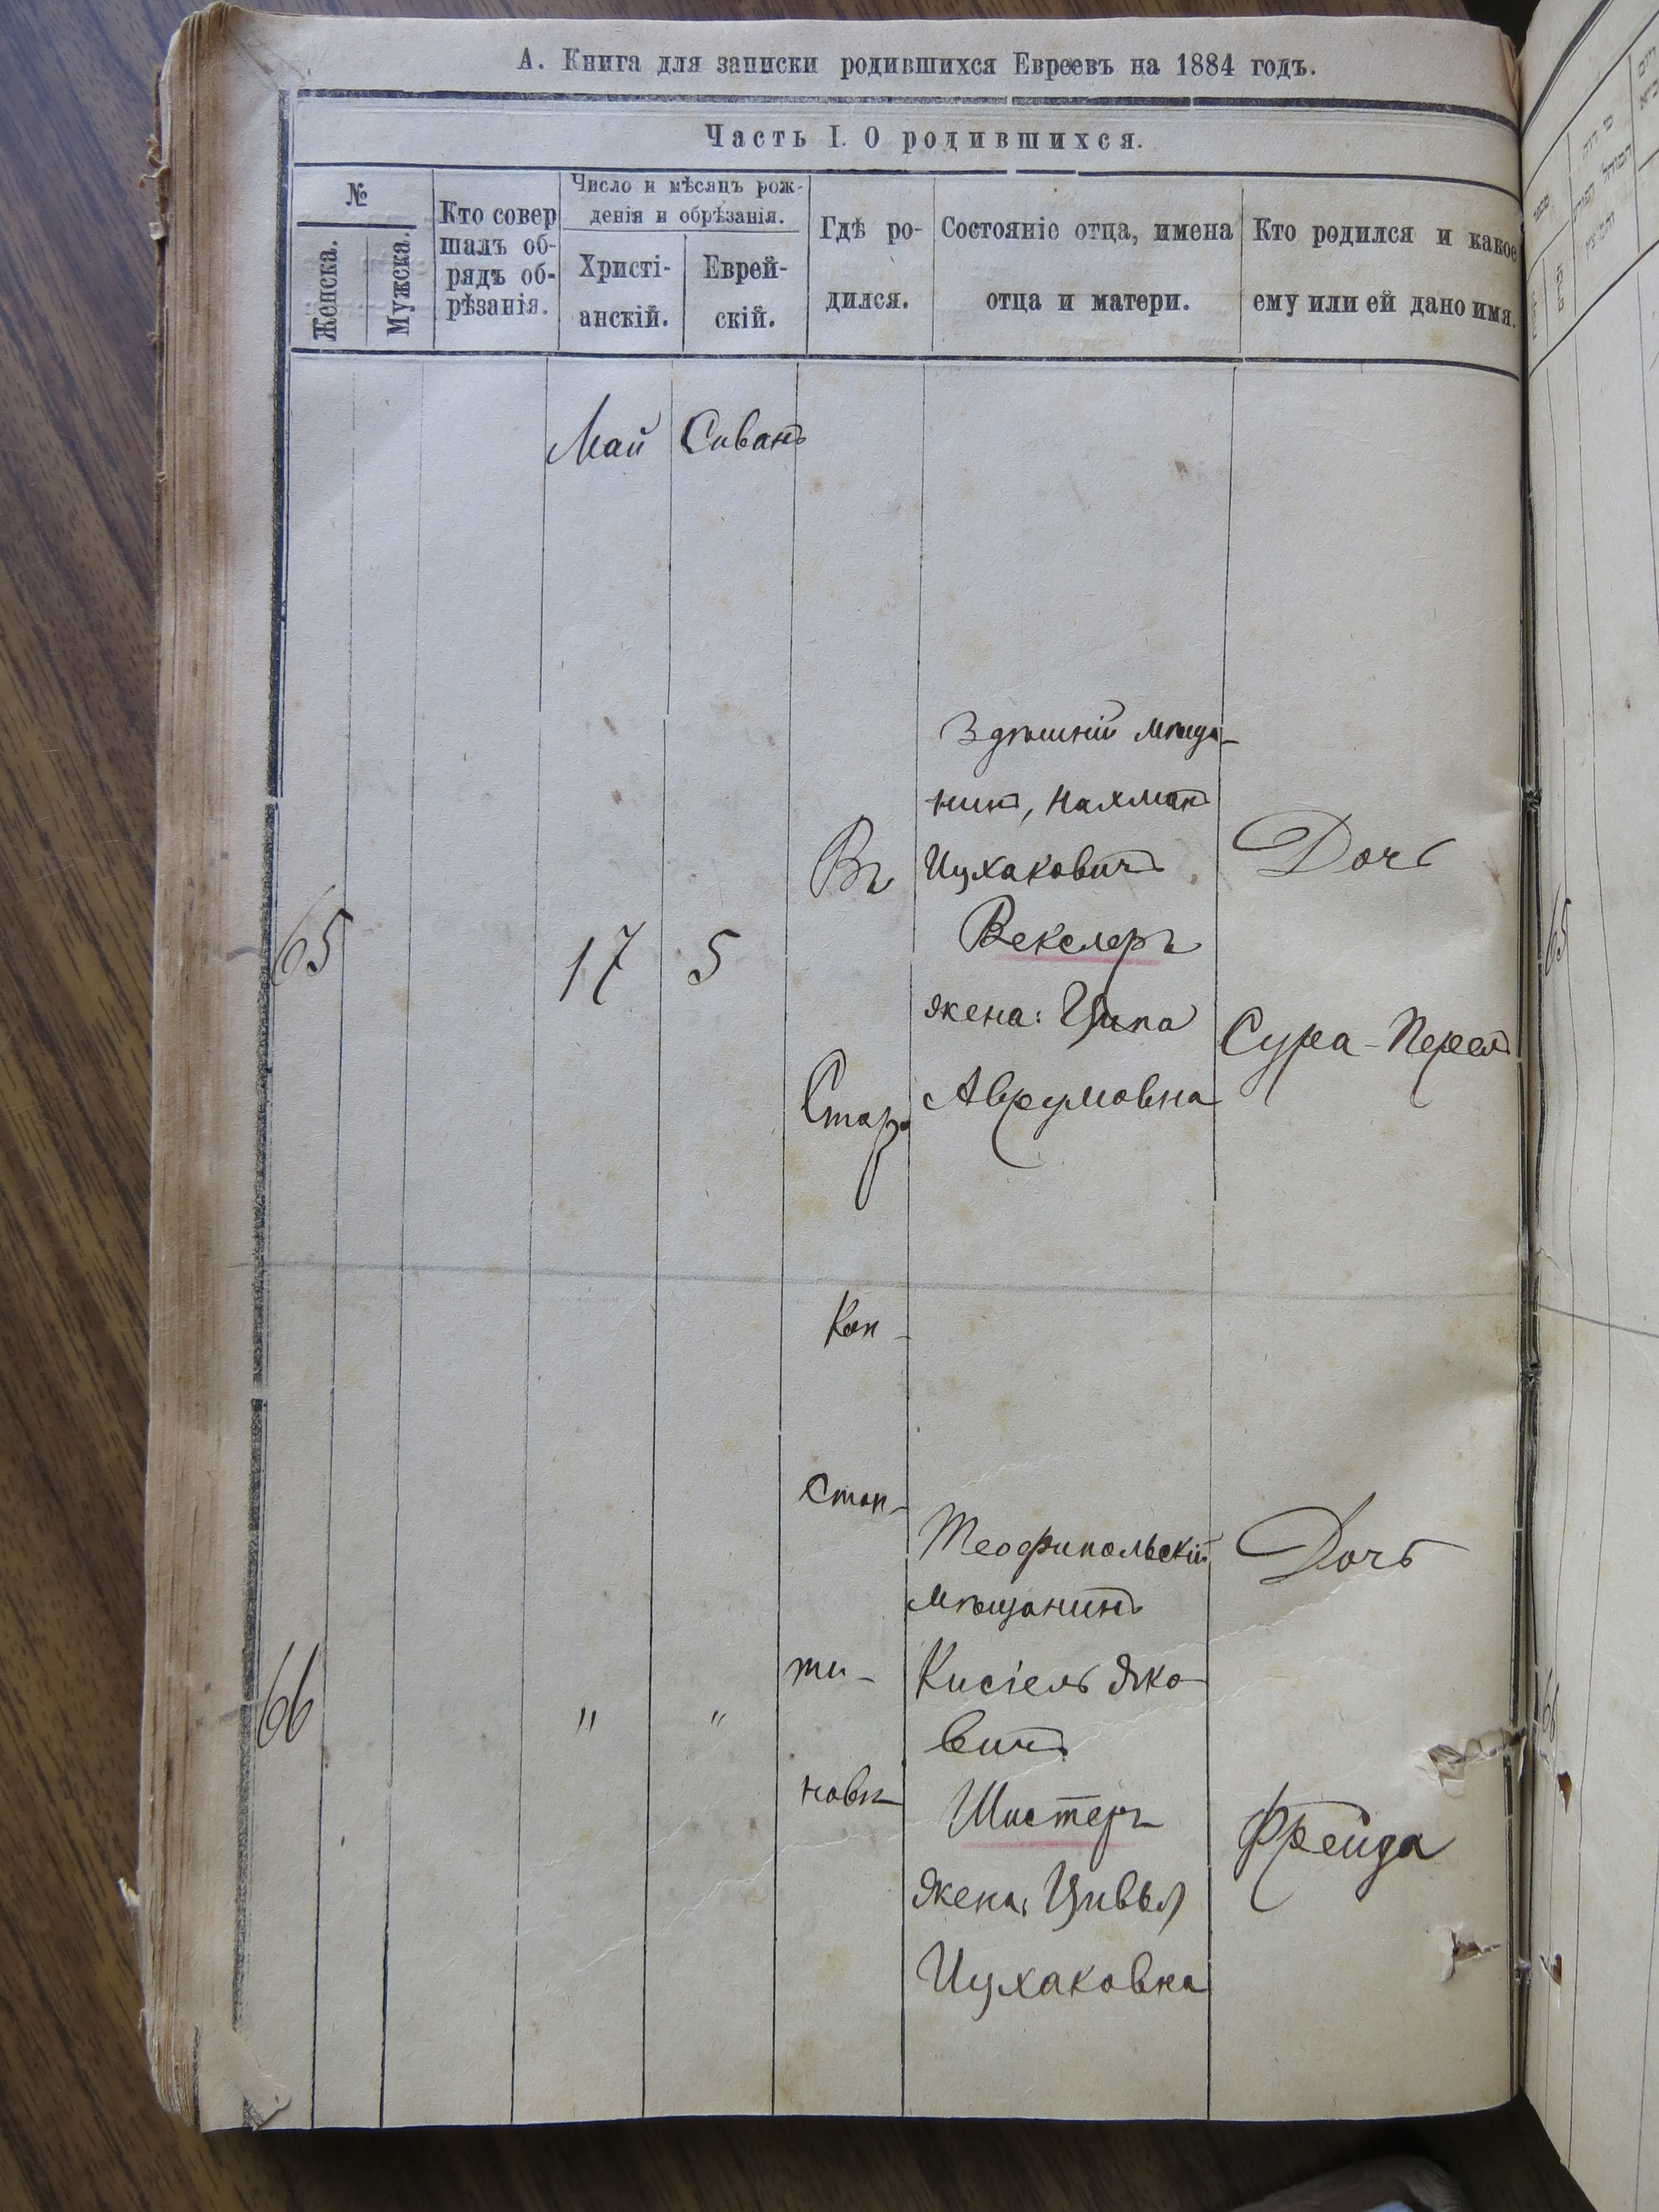 А. Книга для записки родившихся Евреевъ на 1884 годъ.
Часть I. О родившихся.
№
Женска.
Мужска.
Кто совер
шалъ об-
рядъ об-
рѣзанія.
Число и мѣсяцъ рож-
денія и обрѣзанія.
Христі-
анскій.
Еврей-
скій.
Гдѣ ро-
дился.
Состояніе отца, имена
отца и матери.
Кто родился и какое
ему или ей дано имя.
Май Сиванъ
65
17
5
Въ
Стар.
Здѣшній мѣща-
нинъ, Нахманъ
Ицхаковичъ
Векслеръ
жена: Ципа
Аврумовна
Дочь
Сура-Перел
Кон-
стан-
ти-
новѣ
66
"
"
Теофипольскій
мѣщанинъ
Кисіель Яко
вичъ
Шистеръ
жена, Цивья
Ицхаковна
Дочь
Фрейда
65
66